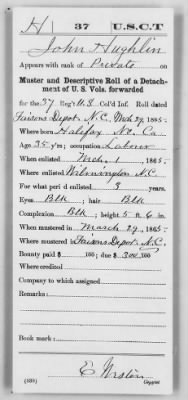 H 37 U.S.C.T
John Hughlin
Appears with rank of Private on
Muster and Descriptive Roll of a Detach-
ment of U. S. Vols. forwarded
for the 37 Reg't U.S. Col'd Inf. Roll dated
Faisons Depot N.C. Mch 29, 1865.
Where born Halifax No. Ca.
Age 35 y'rs; occupation Labour
When enlisted Mch. 1, 1865.
Where enlisted Wilmington N.C.
For what period enlisted 3 years.
Eyes Blk; hair Blk
Complexion Blk; height 5 ft. 6 in.
When mustered in March 29, 1865.
Where mustered in Faisons Depot, N.C.
Bounty paid $ 100; due $ 300 100
Where credited
Company to which assigned
Remarks:
Book mark:
E Weston
(339) Copyist